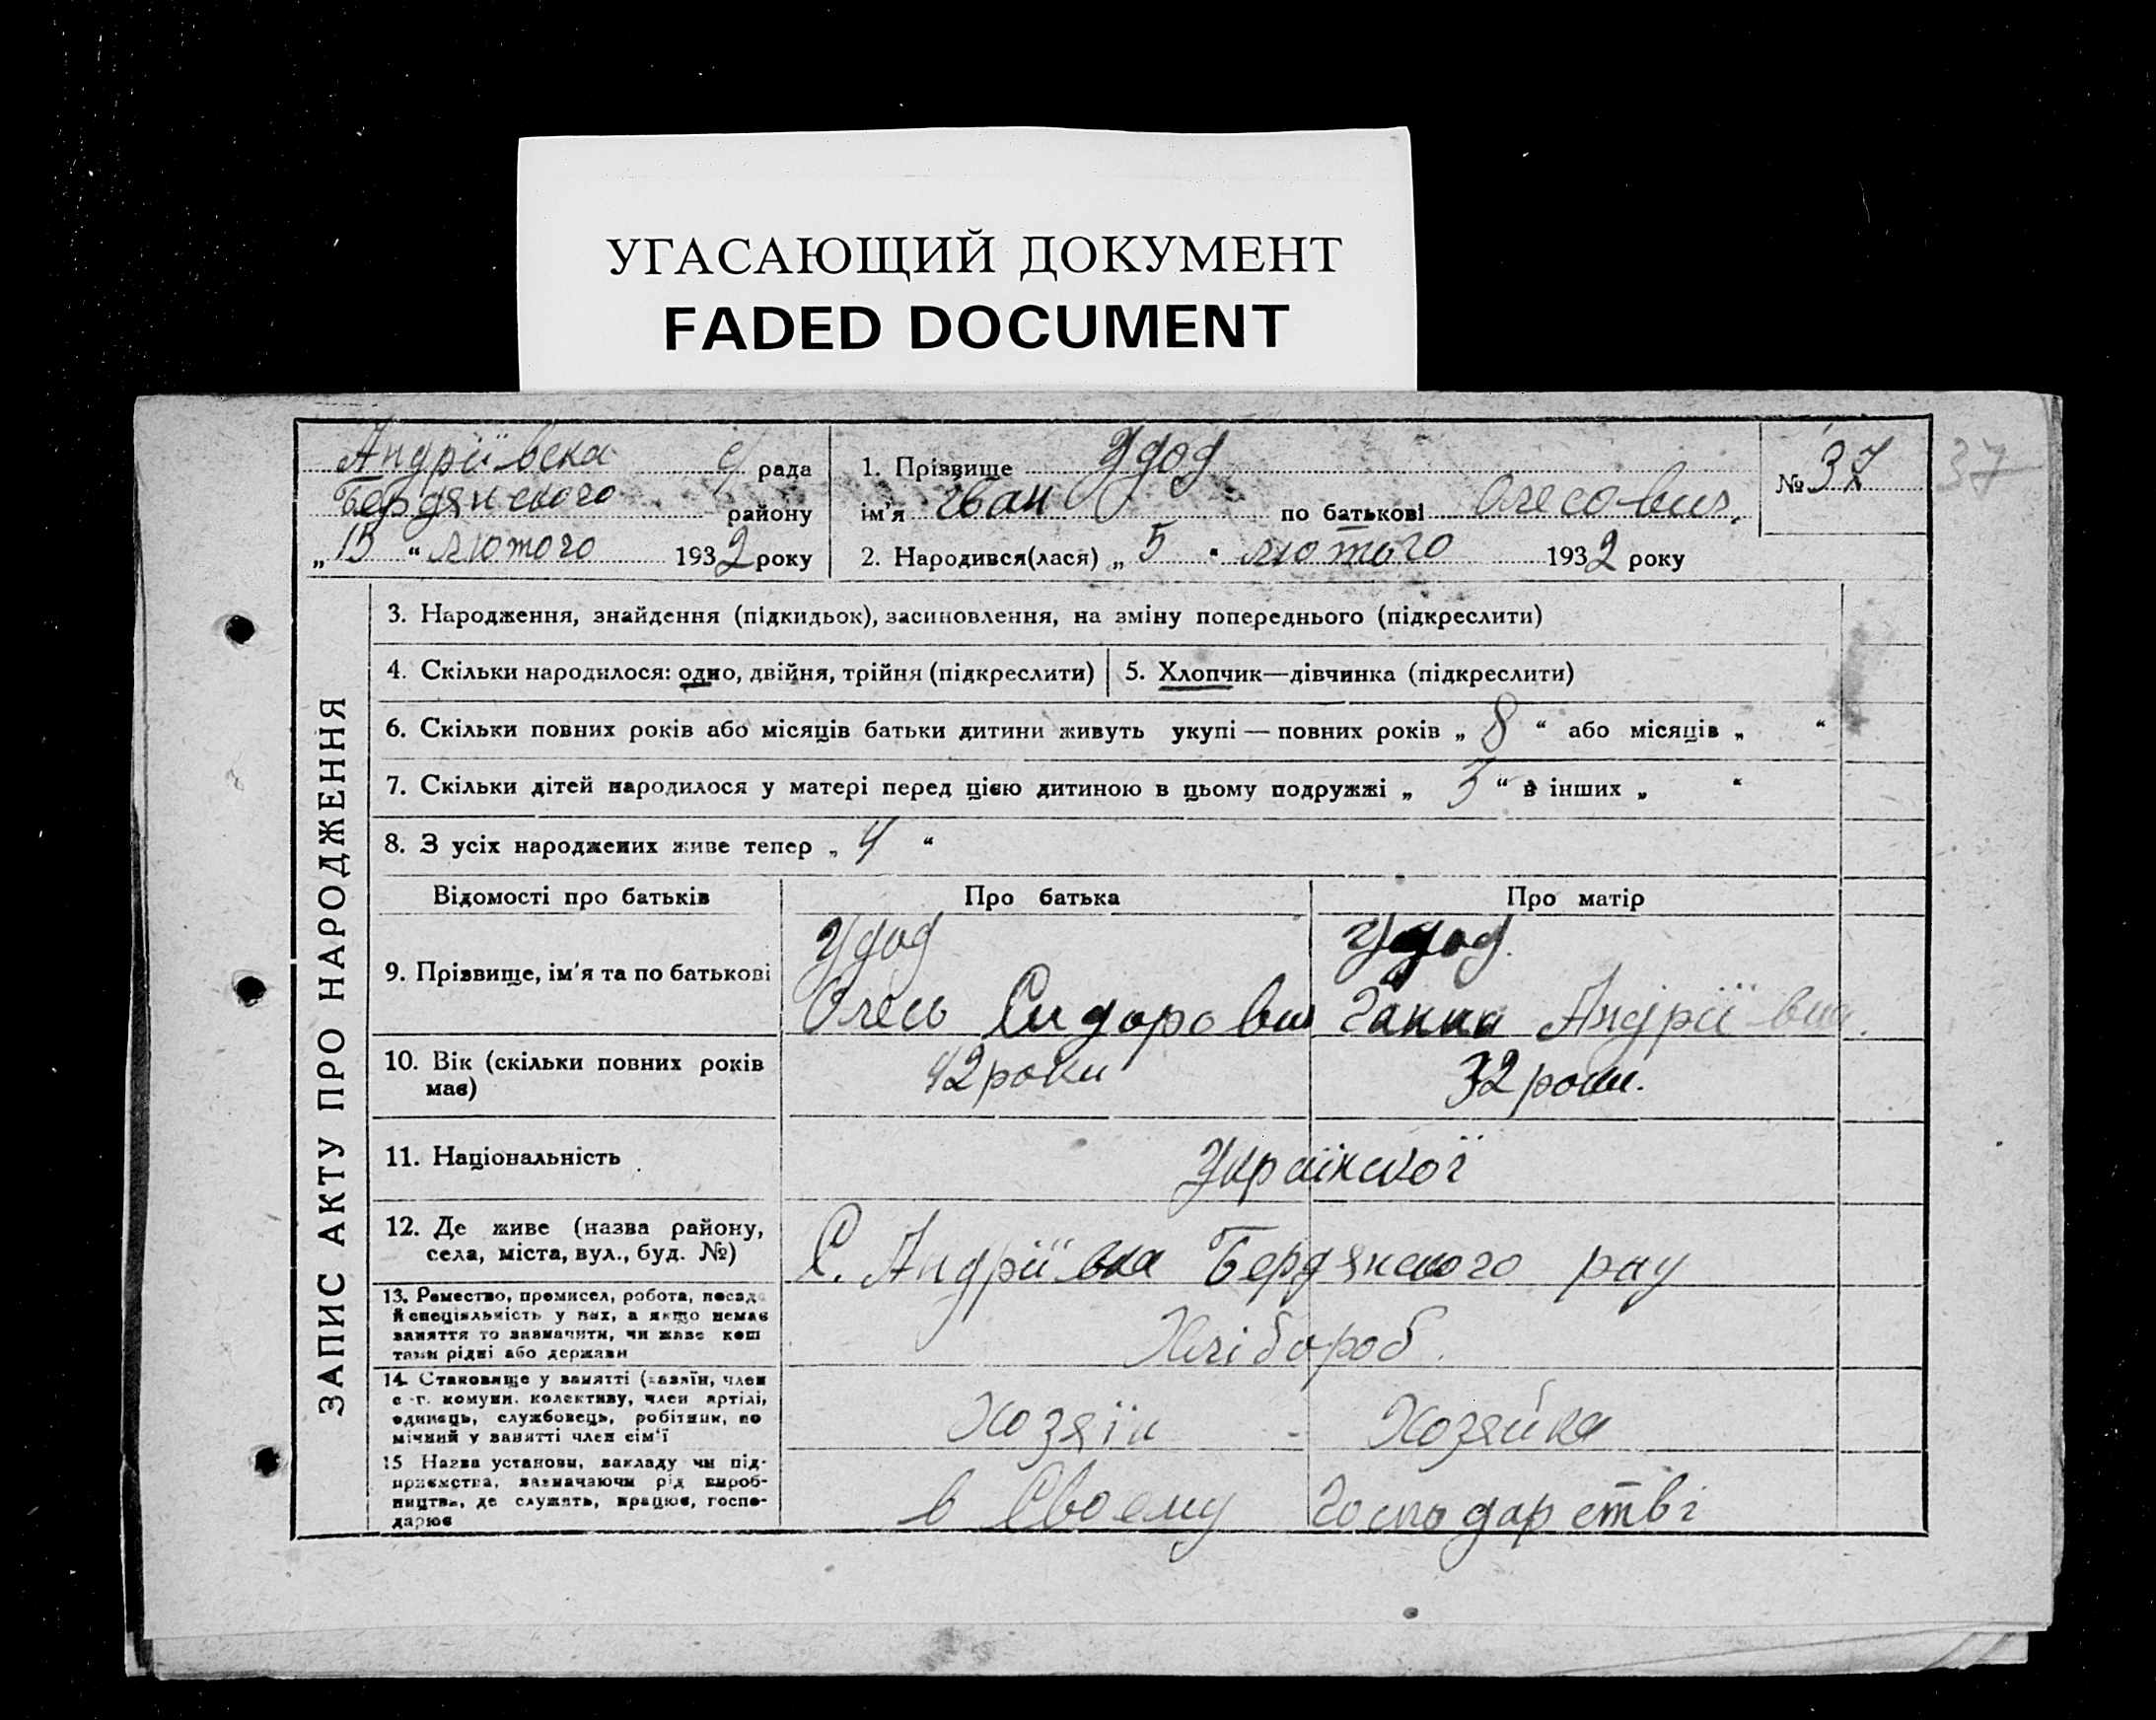 УГАСАЮЩИЙ ДОКУМЕНТ
FADED DOCUMENT
Андріївска с/ рада
Бердянского району
„15“ лютого 1932 року
1. Прізвище Удод
ім'я Іван по батькові Олесович.
2. Народився(лася) „5“ лютого 1932 року
№ 37
37
ЗАПИС АКТУ ПРО НАРОДЖЕННЯ
3. Народження, знайдення (підкидьок), засиновлення, на зміну попереднього (підкреслити)
4. Скільки народилося: одно, двійня, трійня (підкреслити)
5. Хлопчик—дівчинка (підкреслити)
6. Скільки повних років або місяців батьки дитини живуть укупі — повних років „8“ або місяців „ “
7. Скільки дітей народилося у матері перед цією дитиною в цьому подружжі „3“ в інших „ “
8. З усіх народжених живе тепер „4“
Відомості про батьків
Про батька
Про матір
9. Прізвище, ім'я та по батькові
Удод
Олесь Сидорович
Удод.
Ганна Андріївна.
10. Вік (скільки повних років
має)
42 роки
32 роки.
11. Національність
Українскої
12. Де живе (назва району,
села, міста, вул., буд. №)
С. Андріївка Бердянского рау
13. Ремество, промисел, робота, посада
й спеціяльність у них, а якщо немає
заняття то зазначити, чи живе кош
тами рідні або держави
Хлібороб.
14. Становище у занятті (хазяїн, член
с.-г. комуни, колективу, член артілі,
одинець, службовець, робітник, по
мічний у занятті член сім'ї
Хозяїн - Хозяйка
15 Назва установи, закладу чи під-
приємства, зазначаючи рід вироб-
ництва, де служить, працює, госпо-
дарює
в Своему Господарстві